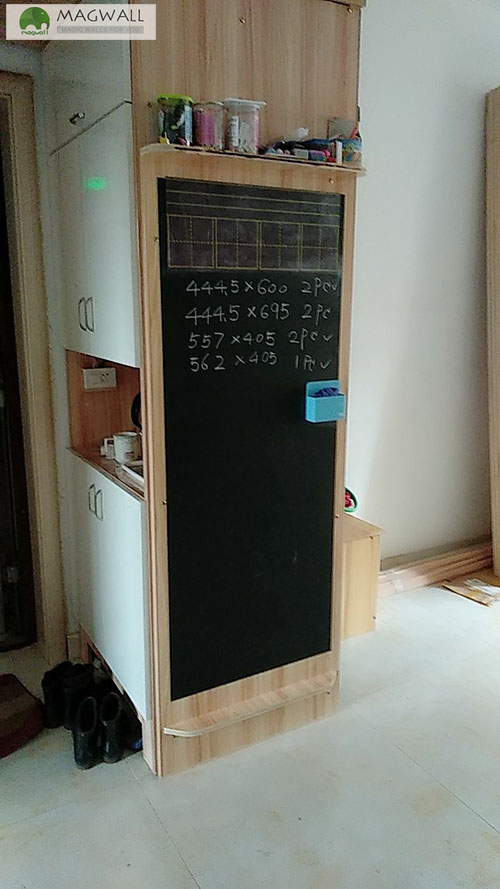 MAGWALL
magwall
MAGIC WALLS FOR YOU
444.5×600 2Pc✓
444.5×695 2Pc
557×405 2Pc✓
562×405 1Pc✓